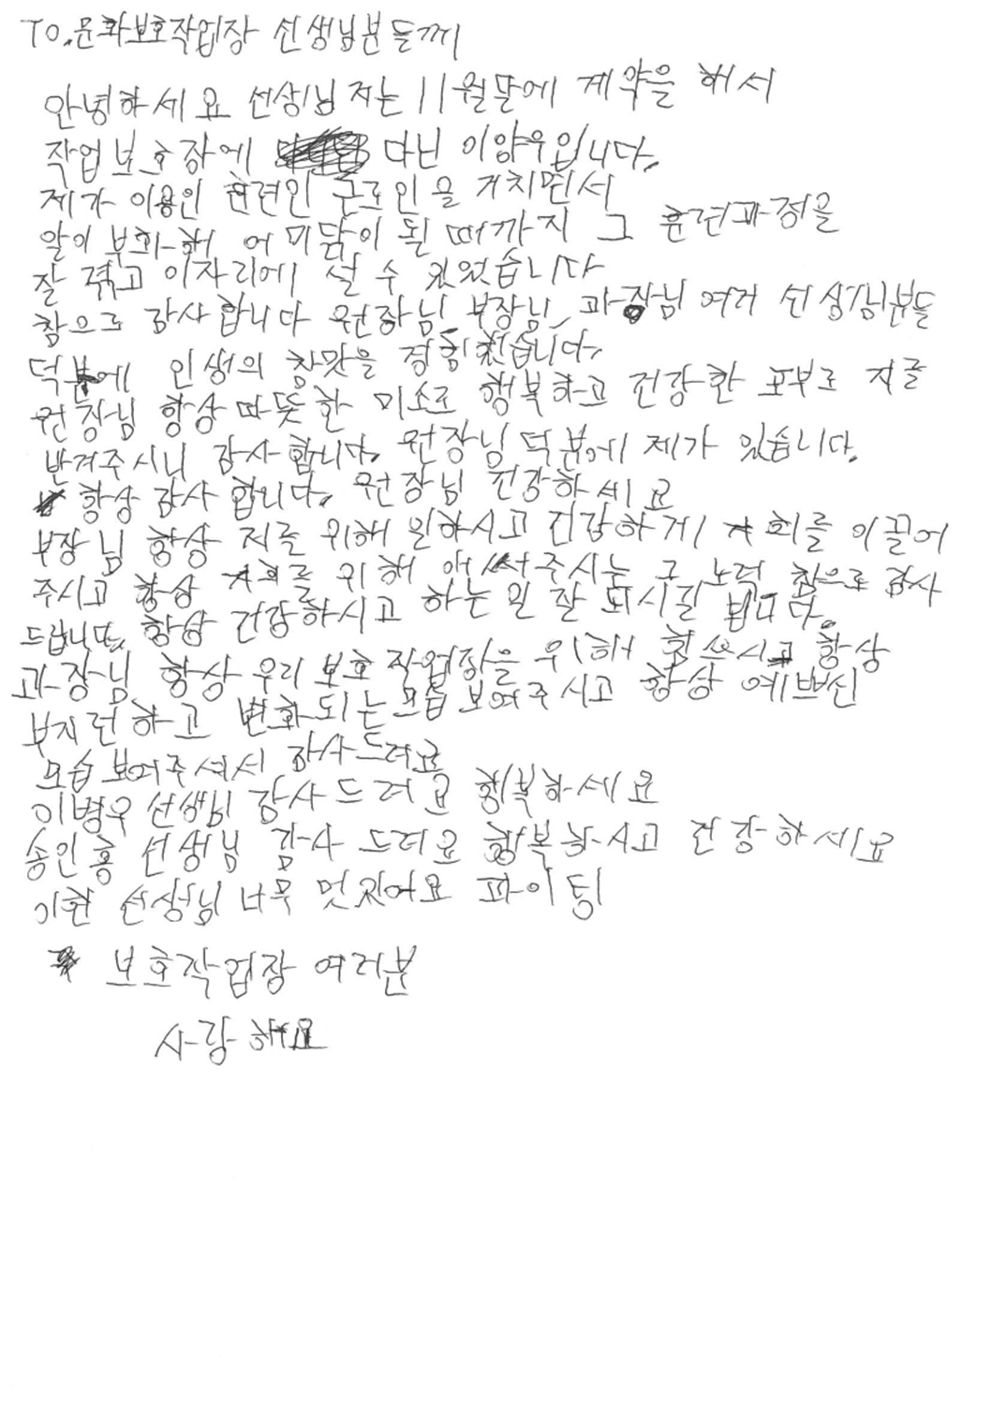 TO.문화보호작업장 선생님분들께
안녕하세요 선생님 저는 11월말에 계약을 해서
작업보호장에 다닌 이양우입니다.
제가 이용인 훈련인 구로인을 거치면서
알이 부화해 어미닭이 된 때까지 그 훈련과정을
잘 겪고 이자리에 설 수 있었습니다
참으로 감사합니다 원장님, 부장님, 과장님 여러 선생님분들
덕분에 인생의 참맛을 경험했습니다.
원장님 항상 따뜻한 미소로 행복하고 건강한 포부로 저를
반겨주시니 감사합니다. 원장님 덕분에 제가 있습니다.
항상 감사합니다. 원장님 건강하세요
부장님 항상 저를 위해 일하시고 건강하게 저희를 이끌어
주시고 항상 저희를 위해 애써주시는 그 노력 참으로 감사
드립니다. 항상 건강하시고 하는일 잘 되시길 빕니다.
과장님 항상 우리 보호작업장을 위해 힘쓰시고 항상
부지런하고 변화되는 모습 보여주시고 항상 예쁘신
모습 보여주셔서 감사드려요
이병우 선생님 감사드려요 행복하세요
송인홍 선생님 감사드려요 행복하시고 건강하세요
선생님 너무 멋있어요 파이팅
보호작업장 여러분
사랑해요